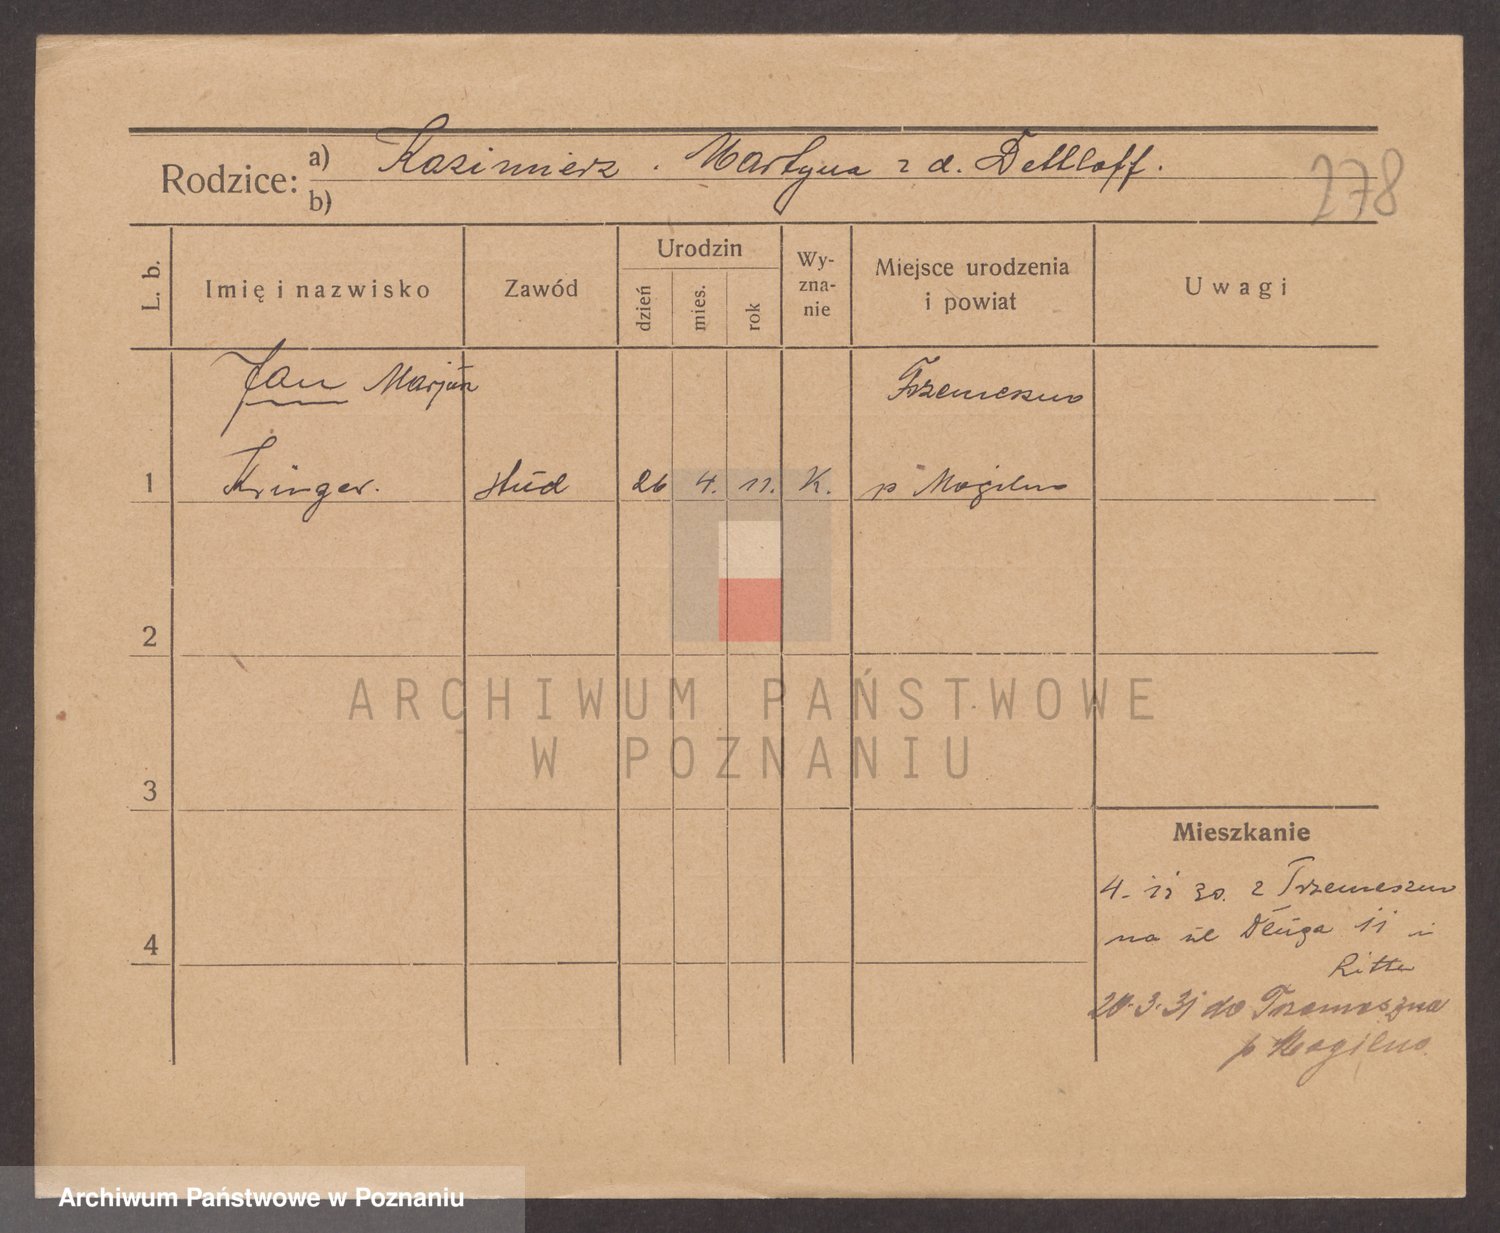 Rodzice: a) Kazimierz . Martyna z d. Dettloff.
b)
278
L. b.
Imię i nazwisko
Zawód
Urodzin
dzień
mies.
rok
Wy-
zna-
nie
Miejsce urodzenia
i powiat
Uwagi
Jan Marjan
Trzemeszno
1 Kringer. stud 26 4. 11. K. p Mogilno
2
ARCHIWUM PAŃSTWOWE
W POZNANIU
3
Mieszkanie
4. 11 30. z Trzemeszno
na ul Długa 11
4
Ritter
20.3.31 do Trzemeszna
p Mogilno.
Archiwum Państwowe w Poznaniu